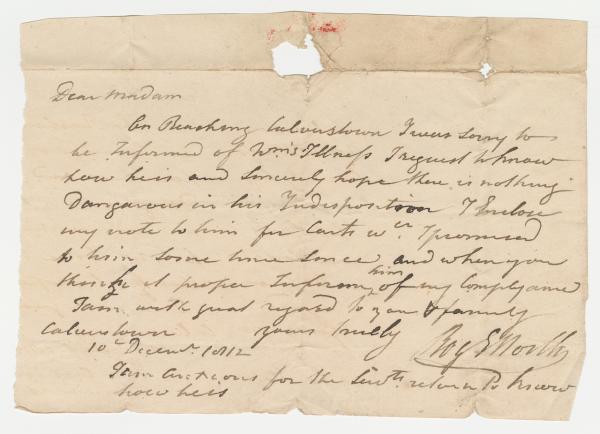 Dear Madam
On Reaching Calverstown I was Sorry to
be Informed of Wm's Illness I request to know
how he is and Sincerely hope there is nothing
Dangarous in his Indisposition I Enclose
my note to him for Carts wch I promised
to him some time since and when you
think it proper Inform him of my Complyance
I am with great regard to you & family
Calverstown yours truly
10th Decemr. 1812
I am Anxious for the return to know
how he is